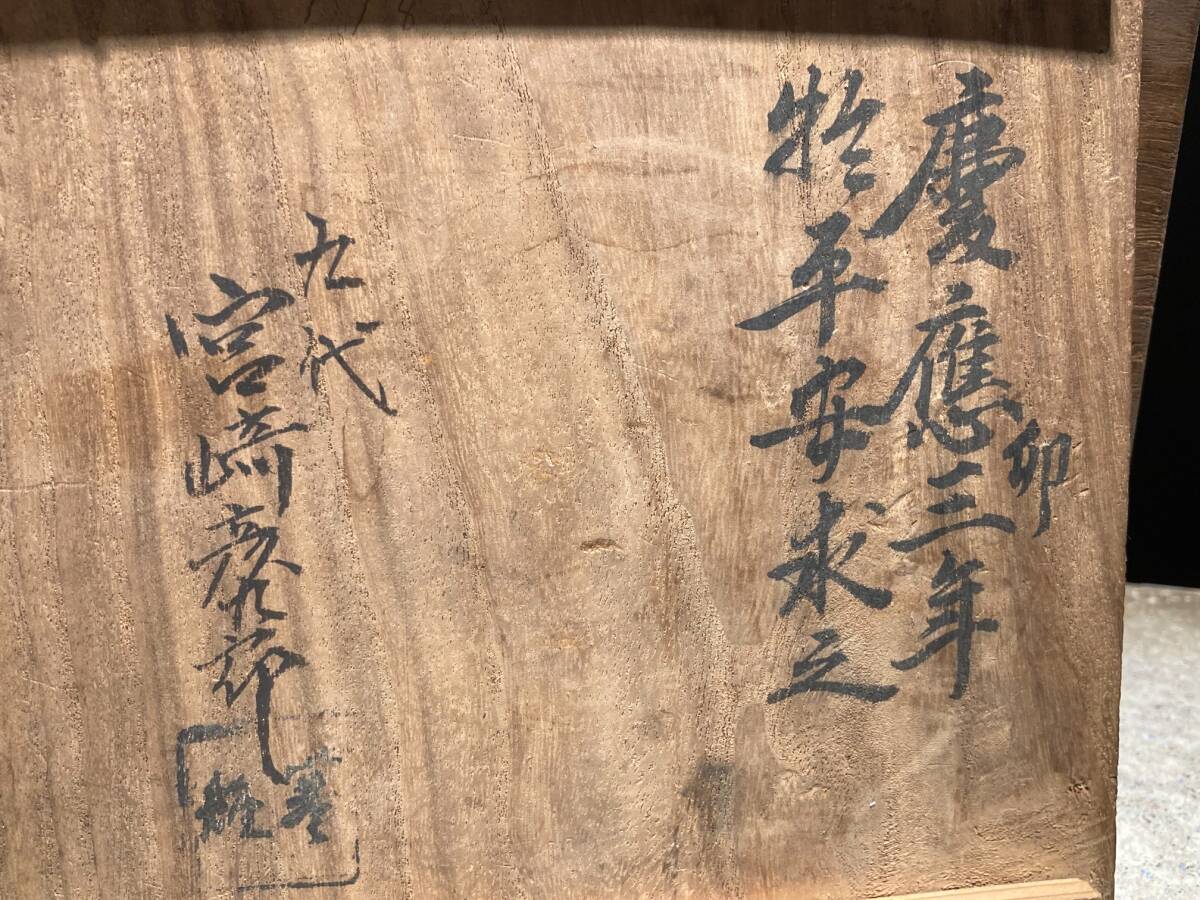 慶應三年
卯
於平安求之
九代
宮崎彦九郎